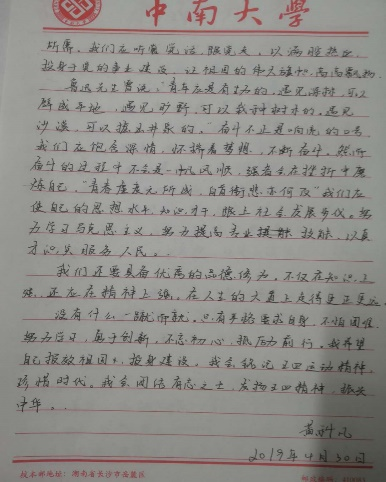 中南大学
所愿，我们应听党党话，跟党走，以满腔热血
投身于党的事业建设，让祖国的伟大旗帜高高飘扬。
鲁迅先生曾说，“青年应是有生力的，遇见深林，可以
辟成平地，遇见旷野，可以栽种树木的，遇见
沙漠，可以掘井泉的。”奋斗不正是响亮的口号
我们应饱含深情，怀揣着梦想，不断奋斗。然而
奋斗的过程中不会是一帆风顺，强者会在挫折中磨
炼自己，“青春虚度无所成，白首衔悲亦何及”我们应
使自己的思想水平，知识才干，跟上社会发展步伐。努
力学习马克思主义，努力提高专业技能，以真
才识实服务人民。
我们还要具备优良的品德修为，不仅在知识上
，还应在精神上强，在人生的大道上走得更正更远。
没有什么一蹴而就，只有严格要求自身，不怕困难，
努力学习，勇于创新，不忘初心，砥砺前行。我希望
自己报效祖国，投身建设。我会铭记五四运动精神，
珍惜时代。我会团结有志之士，发扬五四精神，振兴
中华。
2019年4月30日
校本部地址：湖南省长沙市岳麓区